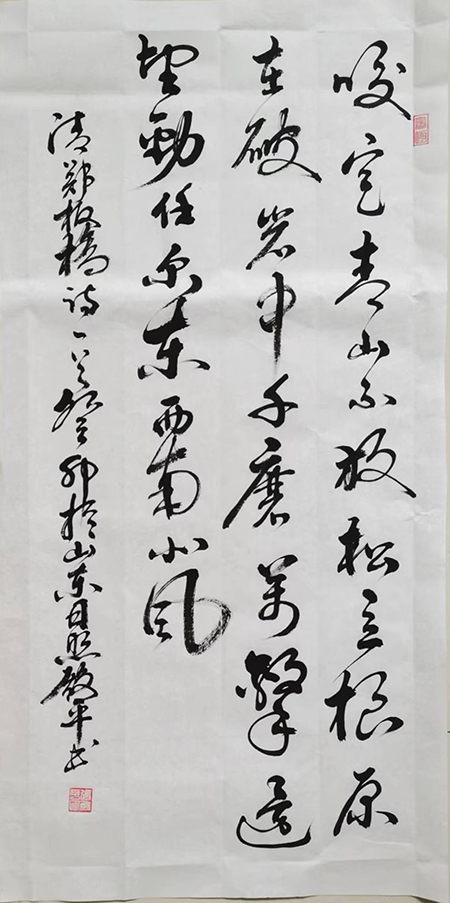 咬定青山不放松立根原
在破岩中千磨萬擊還
坚勁任尔东西南北风
清郑板橋诗一首癸卯於山东日照殿平书